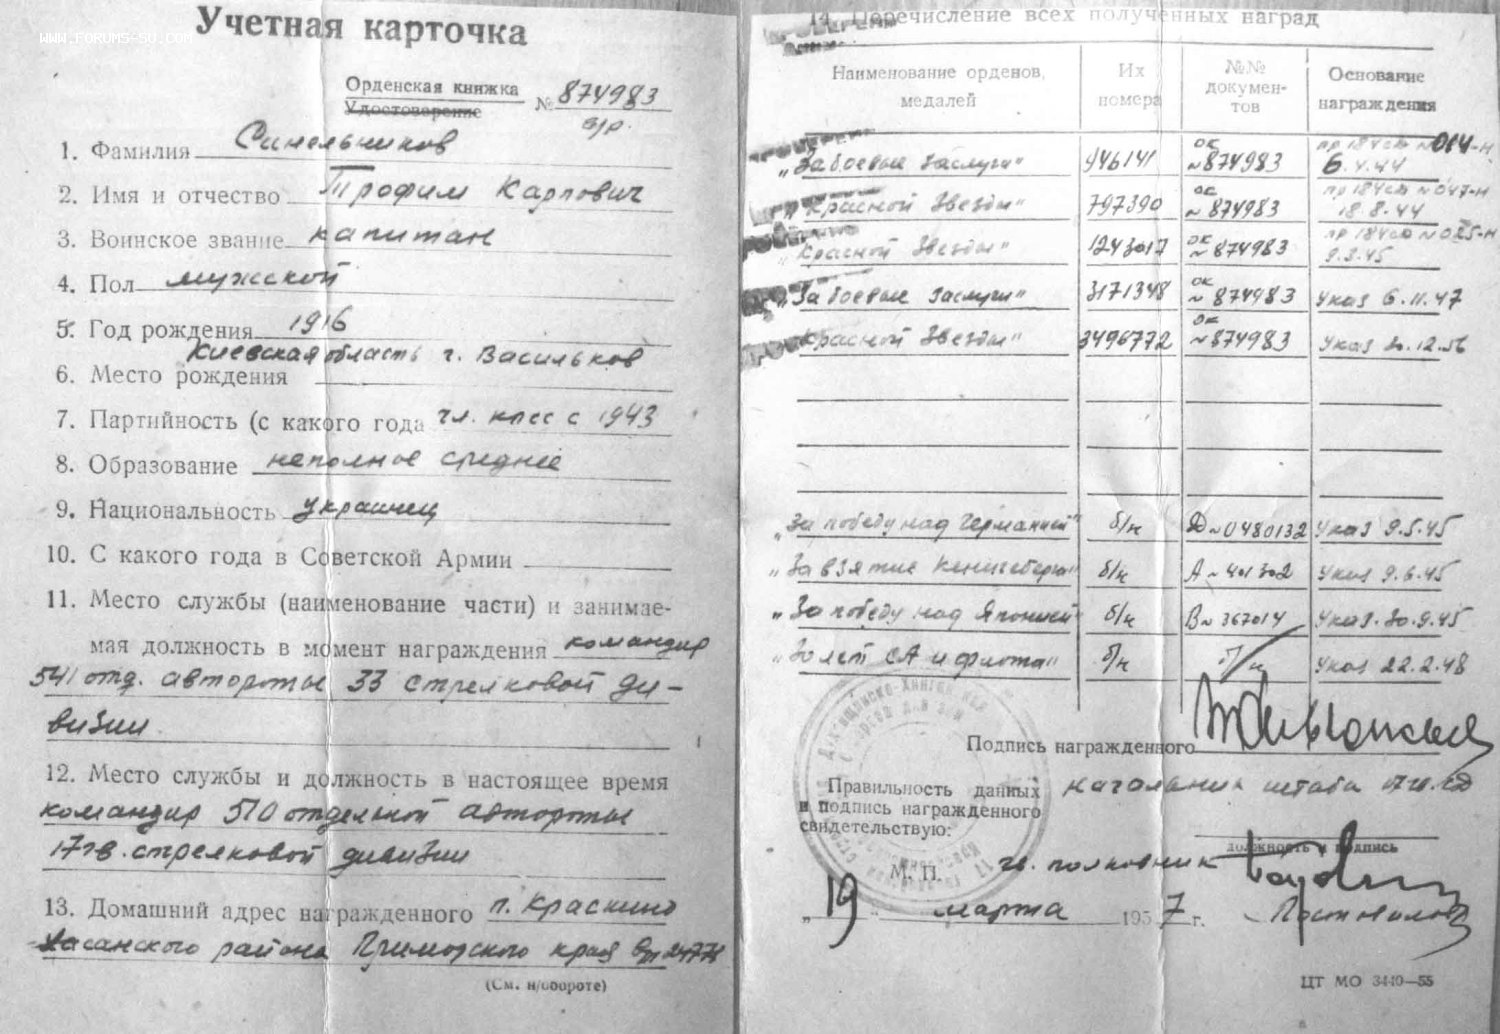 WWW.FORUMS-SU.COM
Учетная карточка
Орденская книжка
Удостоверение № 874983
1. Фамилия Синельников
2. Имя и отчество Трофим Карпович
3. Воинское звание капитан
4. Пол мужской
5. Год рождения 1916
Киевская область г. Васильков
6. Место рождения
7. Партийность (с какого года чл. кпсс с 1943
8. Образование неполное среднее
9. Национальность украинец
10. С какого года в Советской Армии
11. Место службы (наименование части) и занимае-
мая должность в момент награждения командир
541 отд. автороты 33 стрелковой ди-
визии
12. Место службы и должность в настоящее время
командир 510 отдельной автороты
17 гв. стрелковой дивизии
13. Домашний адрес награжденного п. Краскино
Хасанского района Приморского края
(См. н/обороте)
14. Перечисление всех полученных наград
Наименование орденов, медалей Их номера №№ документов Основание награждения
„За боевые заслуги" 946141 ОК № 874983 пр 184 сд № 014-н 6.4.44
„Красной Звезды" 797390 ОК № 874983 пр 184 сд № 047-н 18.8.44
„Красной Звезды" 1243017 ОК № 874983 пр 184 сд № 025-н 9.3.45
„За боевые заслуги" 3171348 ОК № 874983 Указ 6.11.47
„Красной Звезды" 3496772 ОК № 874983 Указ 30.12.56
„За победу над Германией" б/н Д № 0480132 Указ 9.5.45
„За взятие Кенигсберга" б/н А № 401302 Указ 9.6.45
„За победу над Японией" б/н В № 367014 Указ 30.9.45
„30 лет СА и флота" б/н б/н Указ 22.2.48
Подпись награжденного
Правильность данных начальник штаба
и подпись награжденного
свидетельствую:
должность и подпись
М. П. гв. полковник
„19" марта 1957 г.
ЦТ МО 3440—55